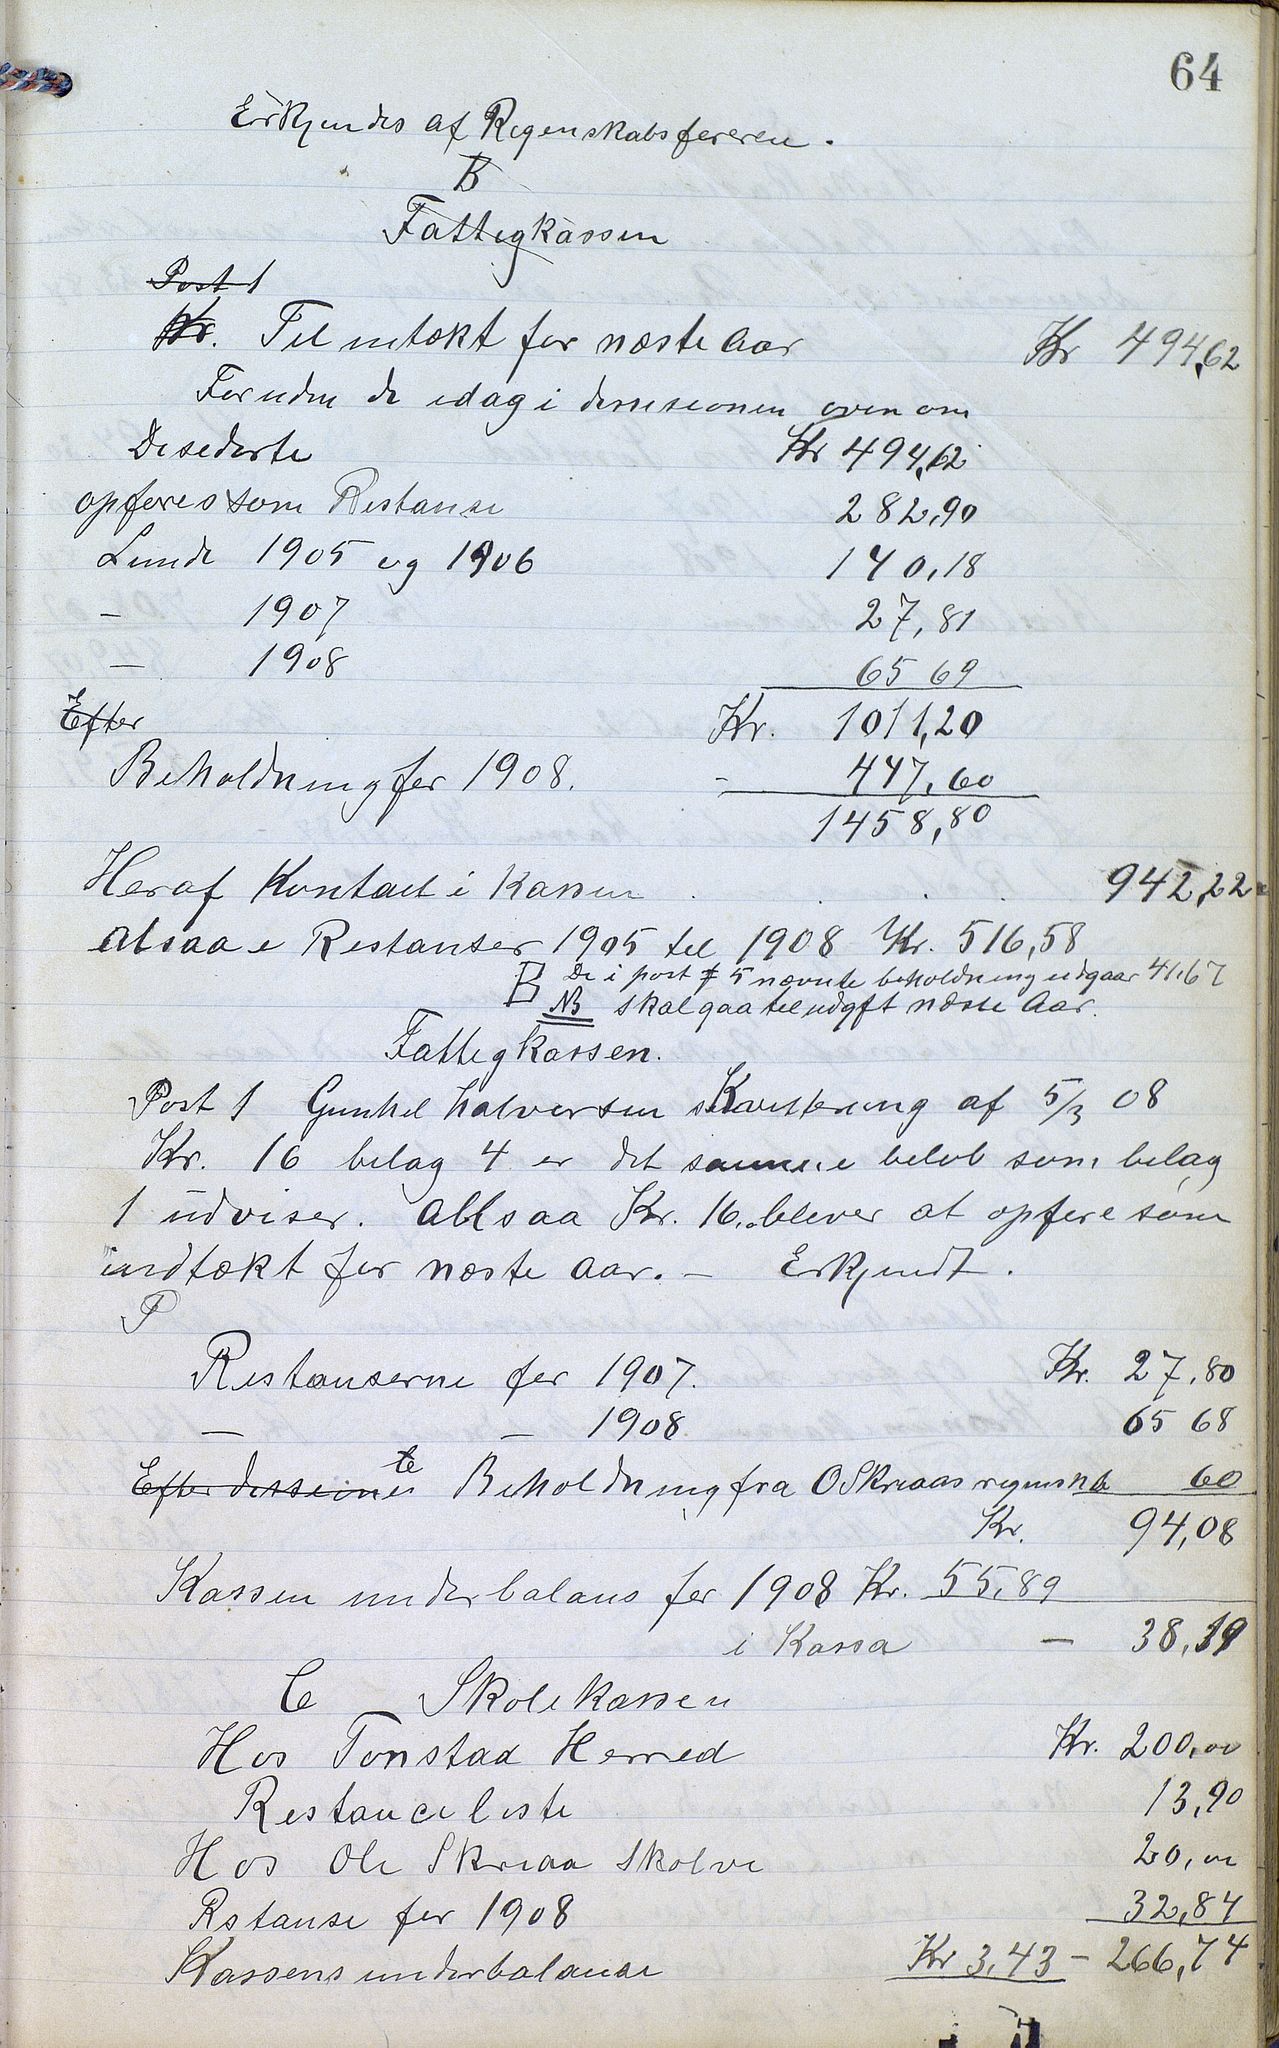 64
Erkjendes af Regenskabsføreren.
B
Fattigkassen
Post 1
Kr. Til intækt for næste Aar Kr 494,62
Foruden de idag i desisionen oven om
Desederte Kr 494,62
opføres som Restanse 282,90
Lunde 1905 og 1906 140,18
— 1907 27,81
— 1908 65 69
Efter Kr. 1011,20
Beholdning for 1908. - 447,60
1458,80
Heraf Kontant i Kassen . . . 942,22
altsaa i Restanser 1905 til 1908 Kr. 516,58
B De i post 5 nævnte beholdning udgaar 41,67
NB skal gaa til udgft næste Aar.
Fattigkassen.
Post 1 Gunhil Halvorsen Kvittering af 5/3 08
Kr. 16 belag 4 er det samme beløb som belag
1 udviser. altsaa Kr. 16,, bliver at opføre som
indtækt for næste Aar. — Erkjendt.
P
Restanserne for 1907. Kr. 27,80
— — 1908 65 68
Efter Beholdning fra O Skreaas regnskab 60
Kr. 94,08
Kassen underbalans for 1908 Kr. 55,89
i Kassa — 38,19
C Skolekassen
Hos Tonstad Herred Kr. 200,00
Restanceliste 13,90
Hos Ole Skreaa 20,00
Rstanse for 1908 32,84
Kassens underbalanse Kr 3,43 — 266,74